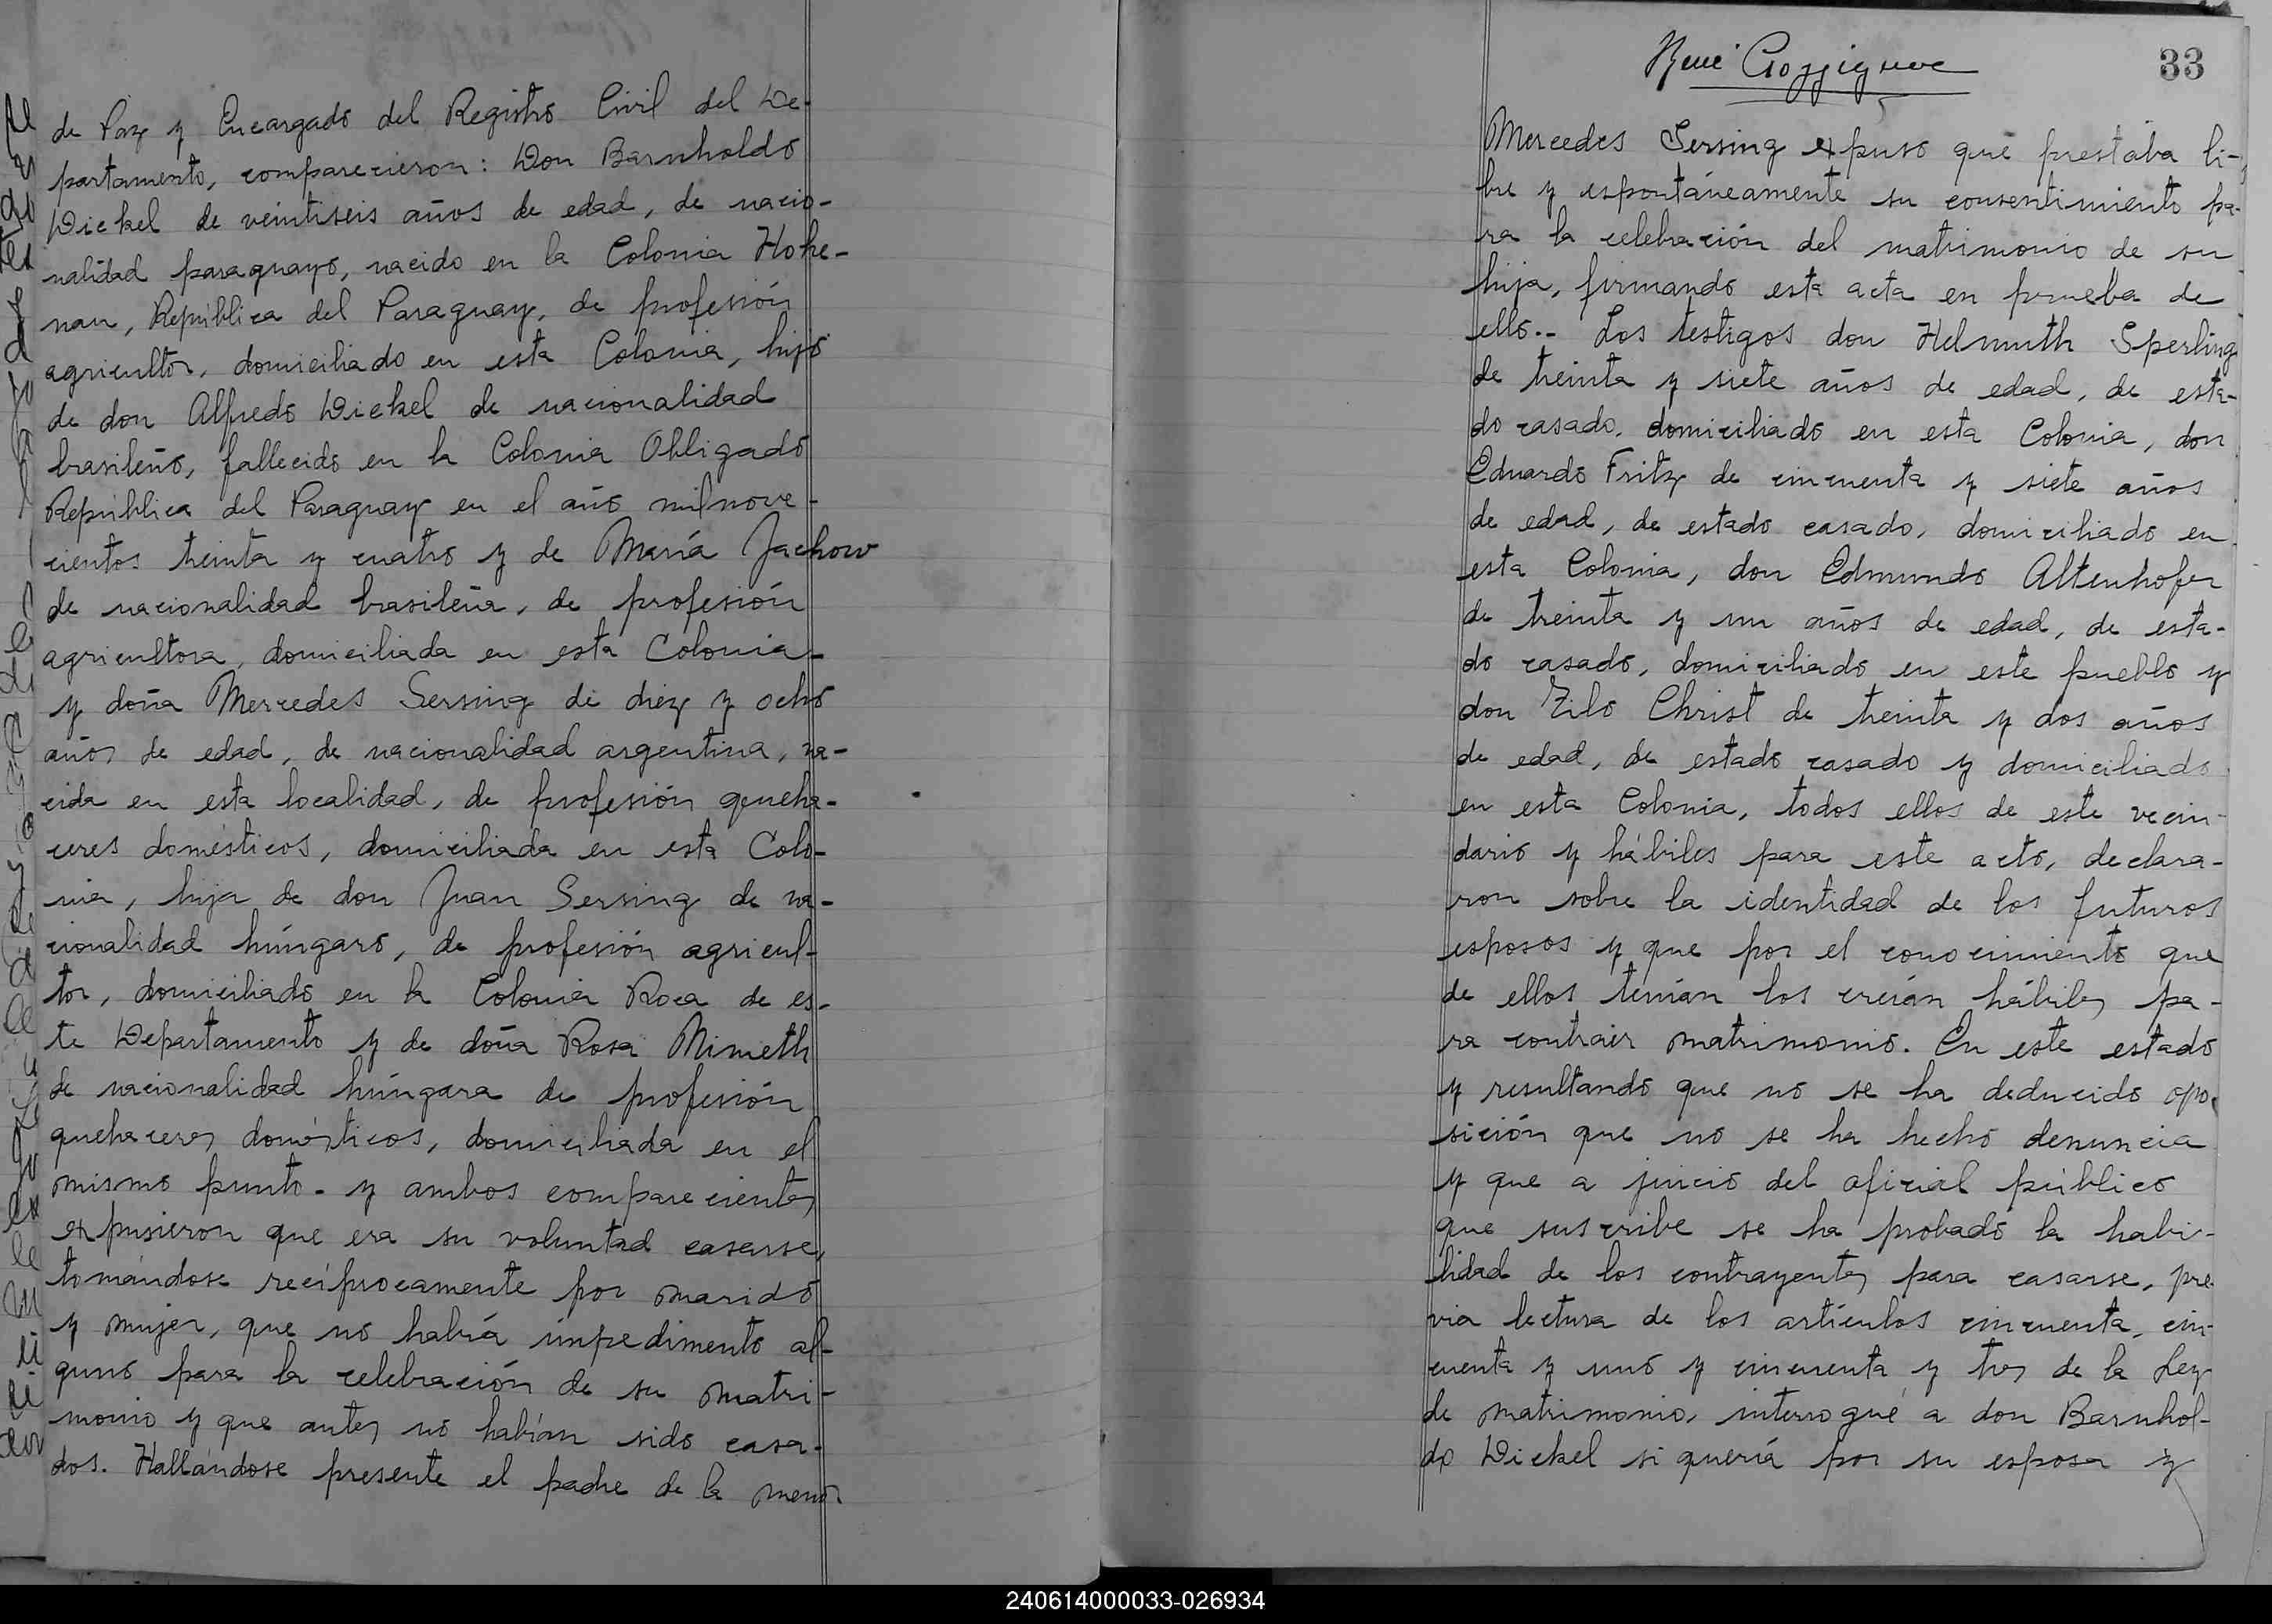 de Paz y Encargado del Registro Civil del De-
partamento, comparecieron: Don Barnholdo
Dickel de veintiseis años de edad, de nacio-
nalidad paraguayo, nacido en la Colonia Hohe-
nau, República del Paraguay, de profesión
agricultor, domiciliado en esta Colonia, hijo
de don Alfredo Dickel de nacionalidad
brasileño, fallecido en la Colonia Obligado
República del Paraguay en el año mil nove-
cientos treinta y cuatro y de María Jachow
de nacionalidad brasileña, de profesión
agricultora, domiciliada en esta Colonia-
y doña Mercedes Sersing de diez y ocho
años de edad, de nacionalidad argentina, na-
cida en esta localidad, de profesión queha-
ceres domésticos, domiciliada en esta Colo-
nia, hija de don Juan Sersing de na-
cionalidad húngaro, de profesión agricul-
tor, domiciliado en la Colonia Roca de es-
te Departamento y de doña Rosa Mimeth
de nacionalidad húngara de profesión
quehaceres domésticos, domiciliada en el
mismo punto- y ambos comparecientes
expusieron que era su voluntad casarse,
tomándose recíprocamente por marido
y mujer, que no había impedimento al-
guno para la celebración de su matri-
monio y que antes no habían sido casa-
dos. Hallándose presente el padre de la menor
33
Mercedes Sersing expuso que prestaba li-
bre y espontáneamente su consentimiento pa-
ra la celebración del matrimonio de su
hija, firmando esta acta en prueba de
ello.- Los testigos don Helmuth Sperling
de treinta y siete años de edad, de esta-
do casado, domiciliado en esta Colonia, don
Eduardo Fritz de cincuenta y siete años
de edad, de estado casado, domiciliado en
esta Colonia, don Edmundo Altenhofer
de treinta y un años de edad, de esta-
do casado, domiciliado en este pueblo y
don Zilo Christ de treinta y dos años
de edad, de estado casado y domiciliado
en esta Colonia, todos ellos de este vecin-
dario y hábiles para este acto, declara-
ron sobre la identidad de los futuros
esposos y que por el conocimiento que
de ellos tenían los creían hábiles pa-
ra contraer matrimonio. En este estado
y resultando que no se ha deducido opo-
sición que no se ha hecho denuncia
y que a juicio del oficial público
que suscribe se ha probado la habi-
lidad de los contrayentes para casarse, pre
via lectura de los artículos cincuenta, cin-
cuenta y uno y cincuenta y tres de la Ley
de matrimonio, interrogué a don Barnhol-
do Dickel si quería por su esposa y
240614000033-026934